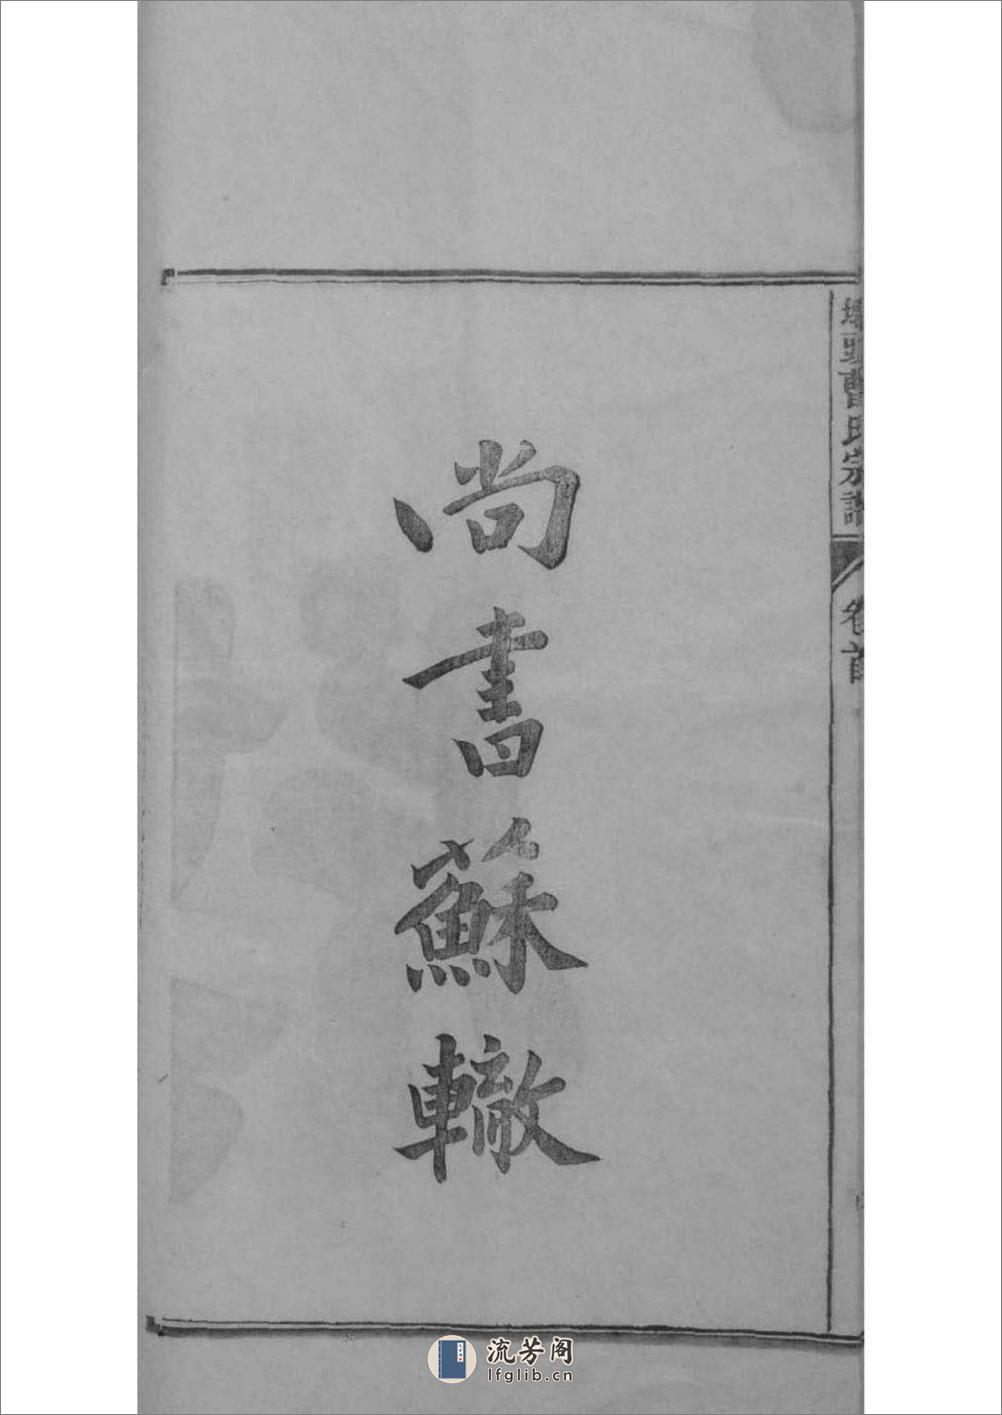 尚書蘇轍
頭曹氏宗譜
卷首
流芳阁
lfglib.cn